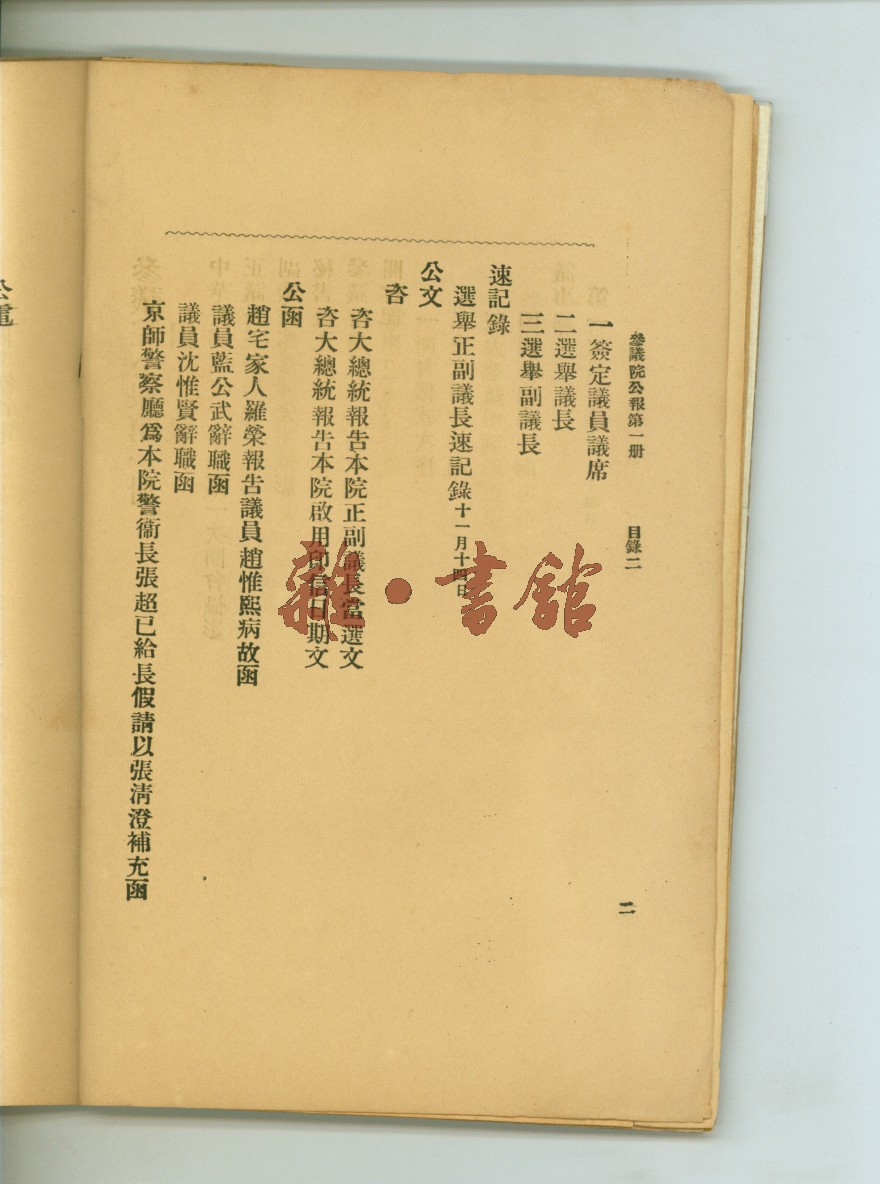 參議院公報第一册 目錄二 二
一簽定議員議席
二選舉議長
三選舉副議長
速記錄
選舉正副議長速記錄十一月十四日
公文
咨
咨大總統報告本院正副議長當選文
咨大總統報告本院啟用印信日期文
公函
趙宅家人羅榮報告議員趙惟熙病故函
議員藍公武辭職函
議員沈惟賢辭職函
京師警察廳爲本院警衞長張超已給長假請以張淸澄補充函
公電
雜·書館